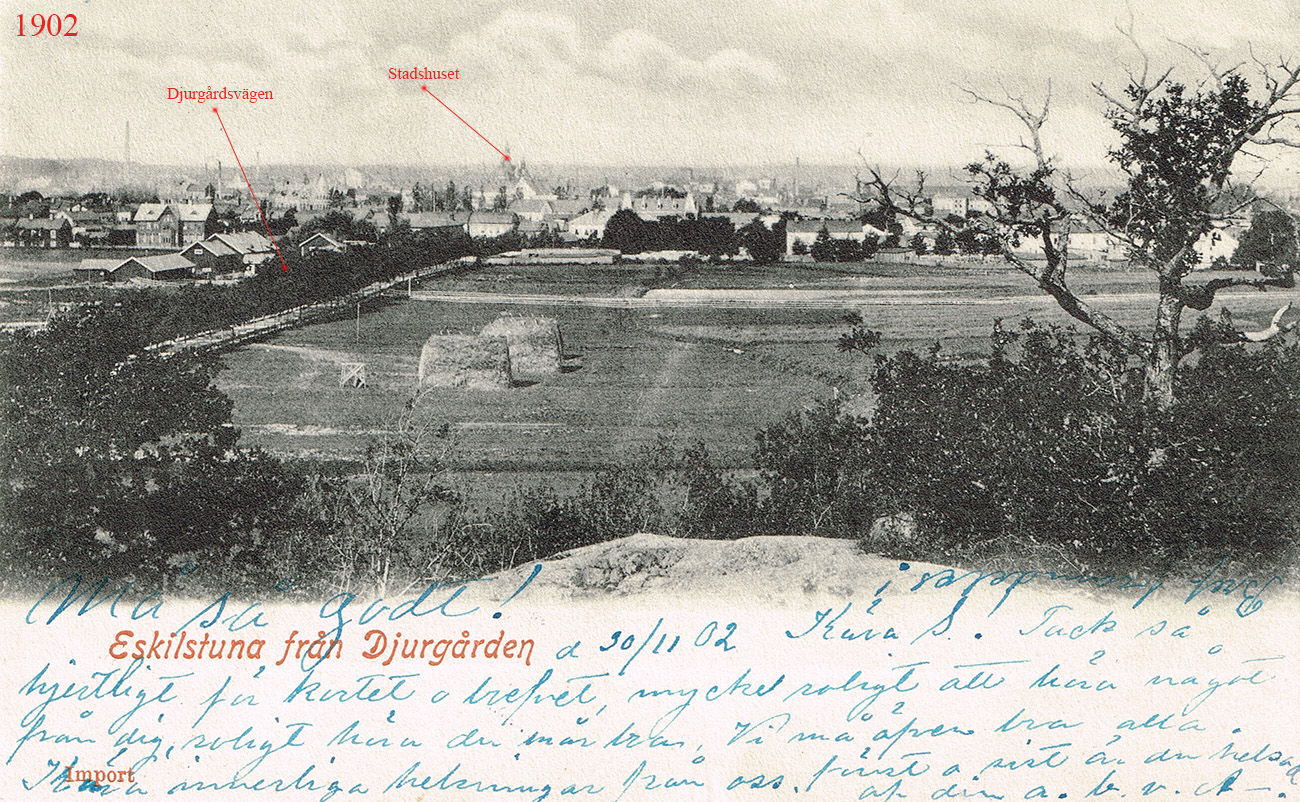 1902
Stadshuset
Djurgårdsvägen
Må så godt!
Eskilstuna från Djurgården
d 30/11 02 Kära S. Tack så
hjertligt för kortet o brefvet, mycket roligt att höra något
från dig, roligt höra du mår bra, Vi må äfven bra alla.
Kära innerliga helsningar från oss. först o sist är du helsad
af din a. b. v. d.
Import